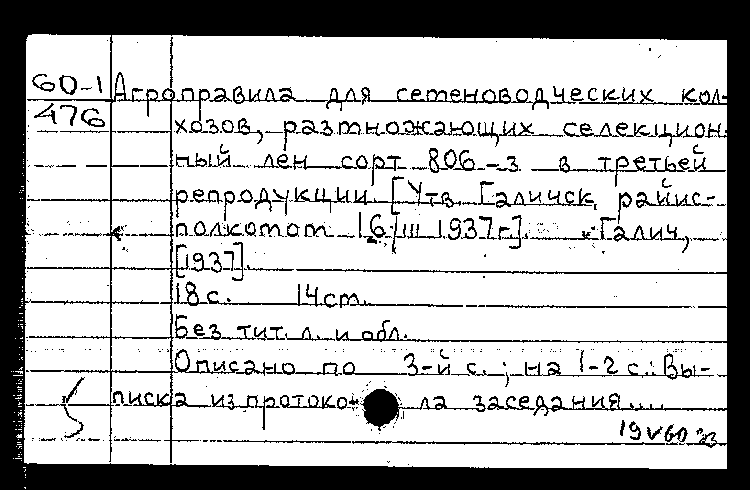 60-1 Агроправила для семеноводческих кол-
476 хозов, размножающих селекцион-
ный лен сорт 806-з в третьей
репродукции. [Утв. Галичск. райис-
полкомом 16/III 1937 г.]. Галич,
[1937].
18 с. 14 см.
Без тит. л. и обл.
Описано по 3-й с.; на 1-2 с.: Вы-
писка из протоко- ла заседания....
19 V 60